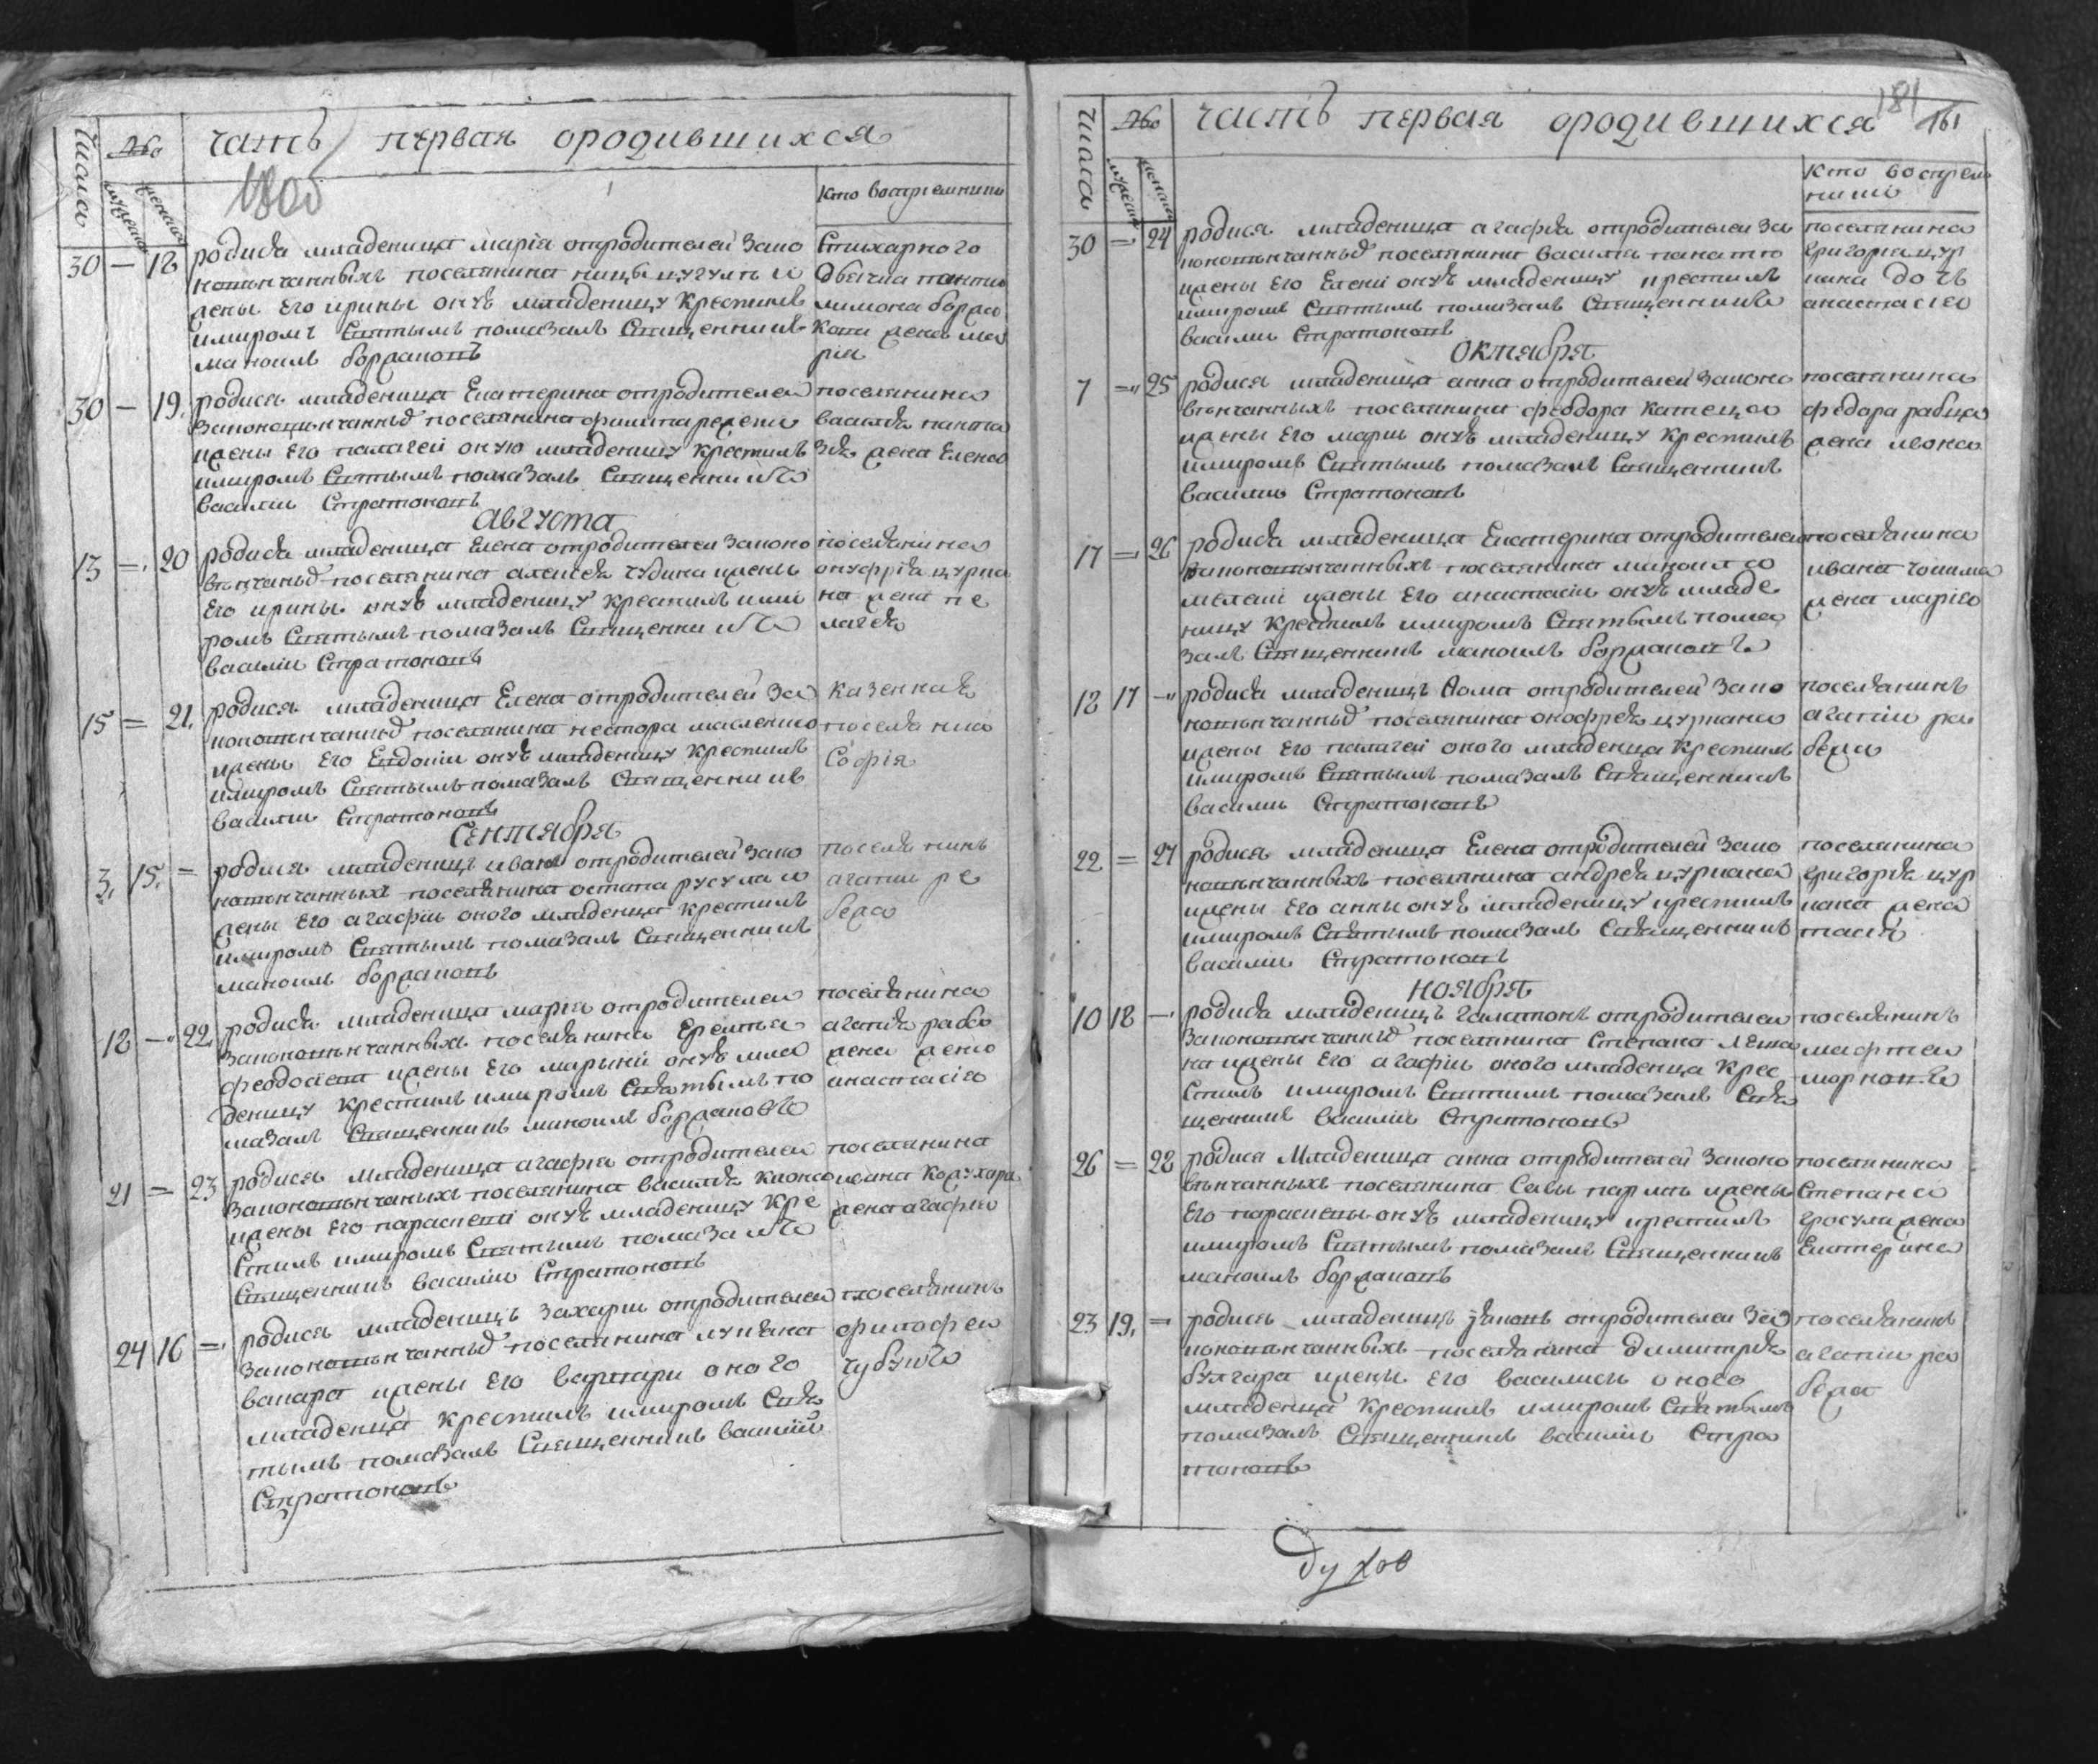 числа
мужеска
женска
часть первая ородившихся
1806
кто восприемники
30 — 18 родися младеница марія отродителей зако
жены его ирины онуѣ младеницу крестилъ
имиромъ святымъ помазалъ священникъ
маноилъ бордановъ
Стихарного
жена ма
рія
30 — 19. родися младеница Екатерина отродителей
жены его палагеи оную младеницу крестилъ
имиромъ святымъ помазалъ священникъ
василии Стратоновъ
поселянина
василя
жена Елена
августа
13 = 20 родися младеница Елена отродителей законо
вѣнчаныхъ поселянина алексея чудина жены
его ирины онуѣ младеницу крестилъ ими
ромъ святымъ помазалъ священникъ
василии Стратоновъ
поселянина
онуфрія цурка
на жена пе
лагея
15 = 21. родися младеница Елена отродителей за
коновѣнчаныхъ поселянина нестора
жены его Евдокіи онуѣ младеницу крестилъ
имиромъ святымъ помазалъ священникъ
василии Стратоновъ
казенная
поселянка
Софія
Сентября
3. 15. = родися младеницъ иванъ отродителей зако
новѣнчаныхъ поселянина остапа русула
жены его агафіи оного младенеца крестилъ
имиромъ святымъ помазалъ священникъ
маноилъ бордановъ
поселянинъ
агапии ре
бежа
18 — 22 родися младеница марія отродителей
законовѣнчанныхъ поселянина Еремѣя
жены его марыни онуѣ мла
деницу крестилъ имиромъ святымъ по
мазалъ священникъ маноилъ бордановъ
поселянина
агапія рабе
жа жена
анастасія
21 = 23 родися младеница агафія отродителей
законовѣнчаныхъ поселянина василя
жены его параскевіи онуѣ младеницу кре
стилъ имиромъ святымъ помазалъ
священникъ василии Стратоновъ
поселянина
ивана
жена агафія
24 16 = родися младеницъ захарии отродителей
законовѣнчаныхъ поселянина лупѣана
жены его варвари оного
младенеца крестилъ имиромъ свя
тымъ помазалъ священникъ василии
Стратоновъ
поселянинъ
филофеи
чубукъ
числа
мужеска
женска
часть первая ородившихся
181
161
кто восприем
ники
30 = 24 родися младеница агафія отродителей за
коновѣнчаныхъ поселянина василія
жены его Елени онуѣ младеницу крестилъ
имиромъ святымъ помазалъ священникъ
василии Стратоновъ
поселянина
григорія цур
кана дочь
анастасіею
октября
7 = 25 родися младеница анна отродителей законо
вѣнчанныхъ поселянина феодора катеца
жены его маріи онуѣ младеницу крестилъ
имиромъ святымъ помазалъ священникъ
василии Стратоновъ
поселянина
федора
жена
17 = 26 родися младеница Екатерина отродителей
законовѣнчанныхъ поселянина маноила
жены его анастасіи онуѣ младе
ницу крестилъ имиромъ святымъ пома
залъ священникъ маноилъ бордановъ
поселянина
ивана
жена марія
18 17 — родися младеницъ Фома отродителей зако
новѣнчаныхъ поселянина онофрея цуркана
жены его палагеи оного младенеца крестилъ
имиромъ святымъ помазалъ священникъ
василии Стратоновъ
поселянинъ
агапии ра
бежа
22 = 27 родися младеница Елена отродителей зако
новѣнчанныхъ поселянина андрея цуркана
жены его анны онуѣ младеницу крестилъ
имиромъ святымъ помазалъ священникъ
василии Стратоновъ
поселянина
григорія цур
кана жена
тасія
ноября
10 18 — родися младеницъ галатонъ отродителей
законовѣнчаныхъ поселянина Степана
жены его агафіи оного младенеца крес
стилъ имиромъ святымъ помазалъ свя
щенникъ василии Стратоновъ
поселянинъ
26 = 28 родися младеница анна отродителей законо
вѣнчанныхъ поселянина Савы жены
его параскевы онуѣ младеницу крестилъ
имиромъ святымъ помазалъ священникъ
маноилъ бордановъ
поселянина
Степана
жена
Екатерина
23 19. = родися младеницъ отродителей за
коновѣнчанныхъ поселянина димитрія
булгара жены его василиси оного
младенеца крестилъ имиромъ святымъ
помазалъ священникъ василии Стра
тоновъ
поселянинъ
агапии ра
бежа
духов